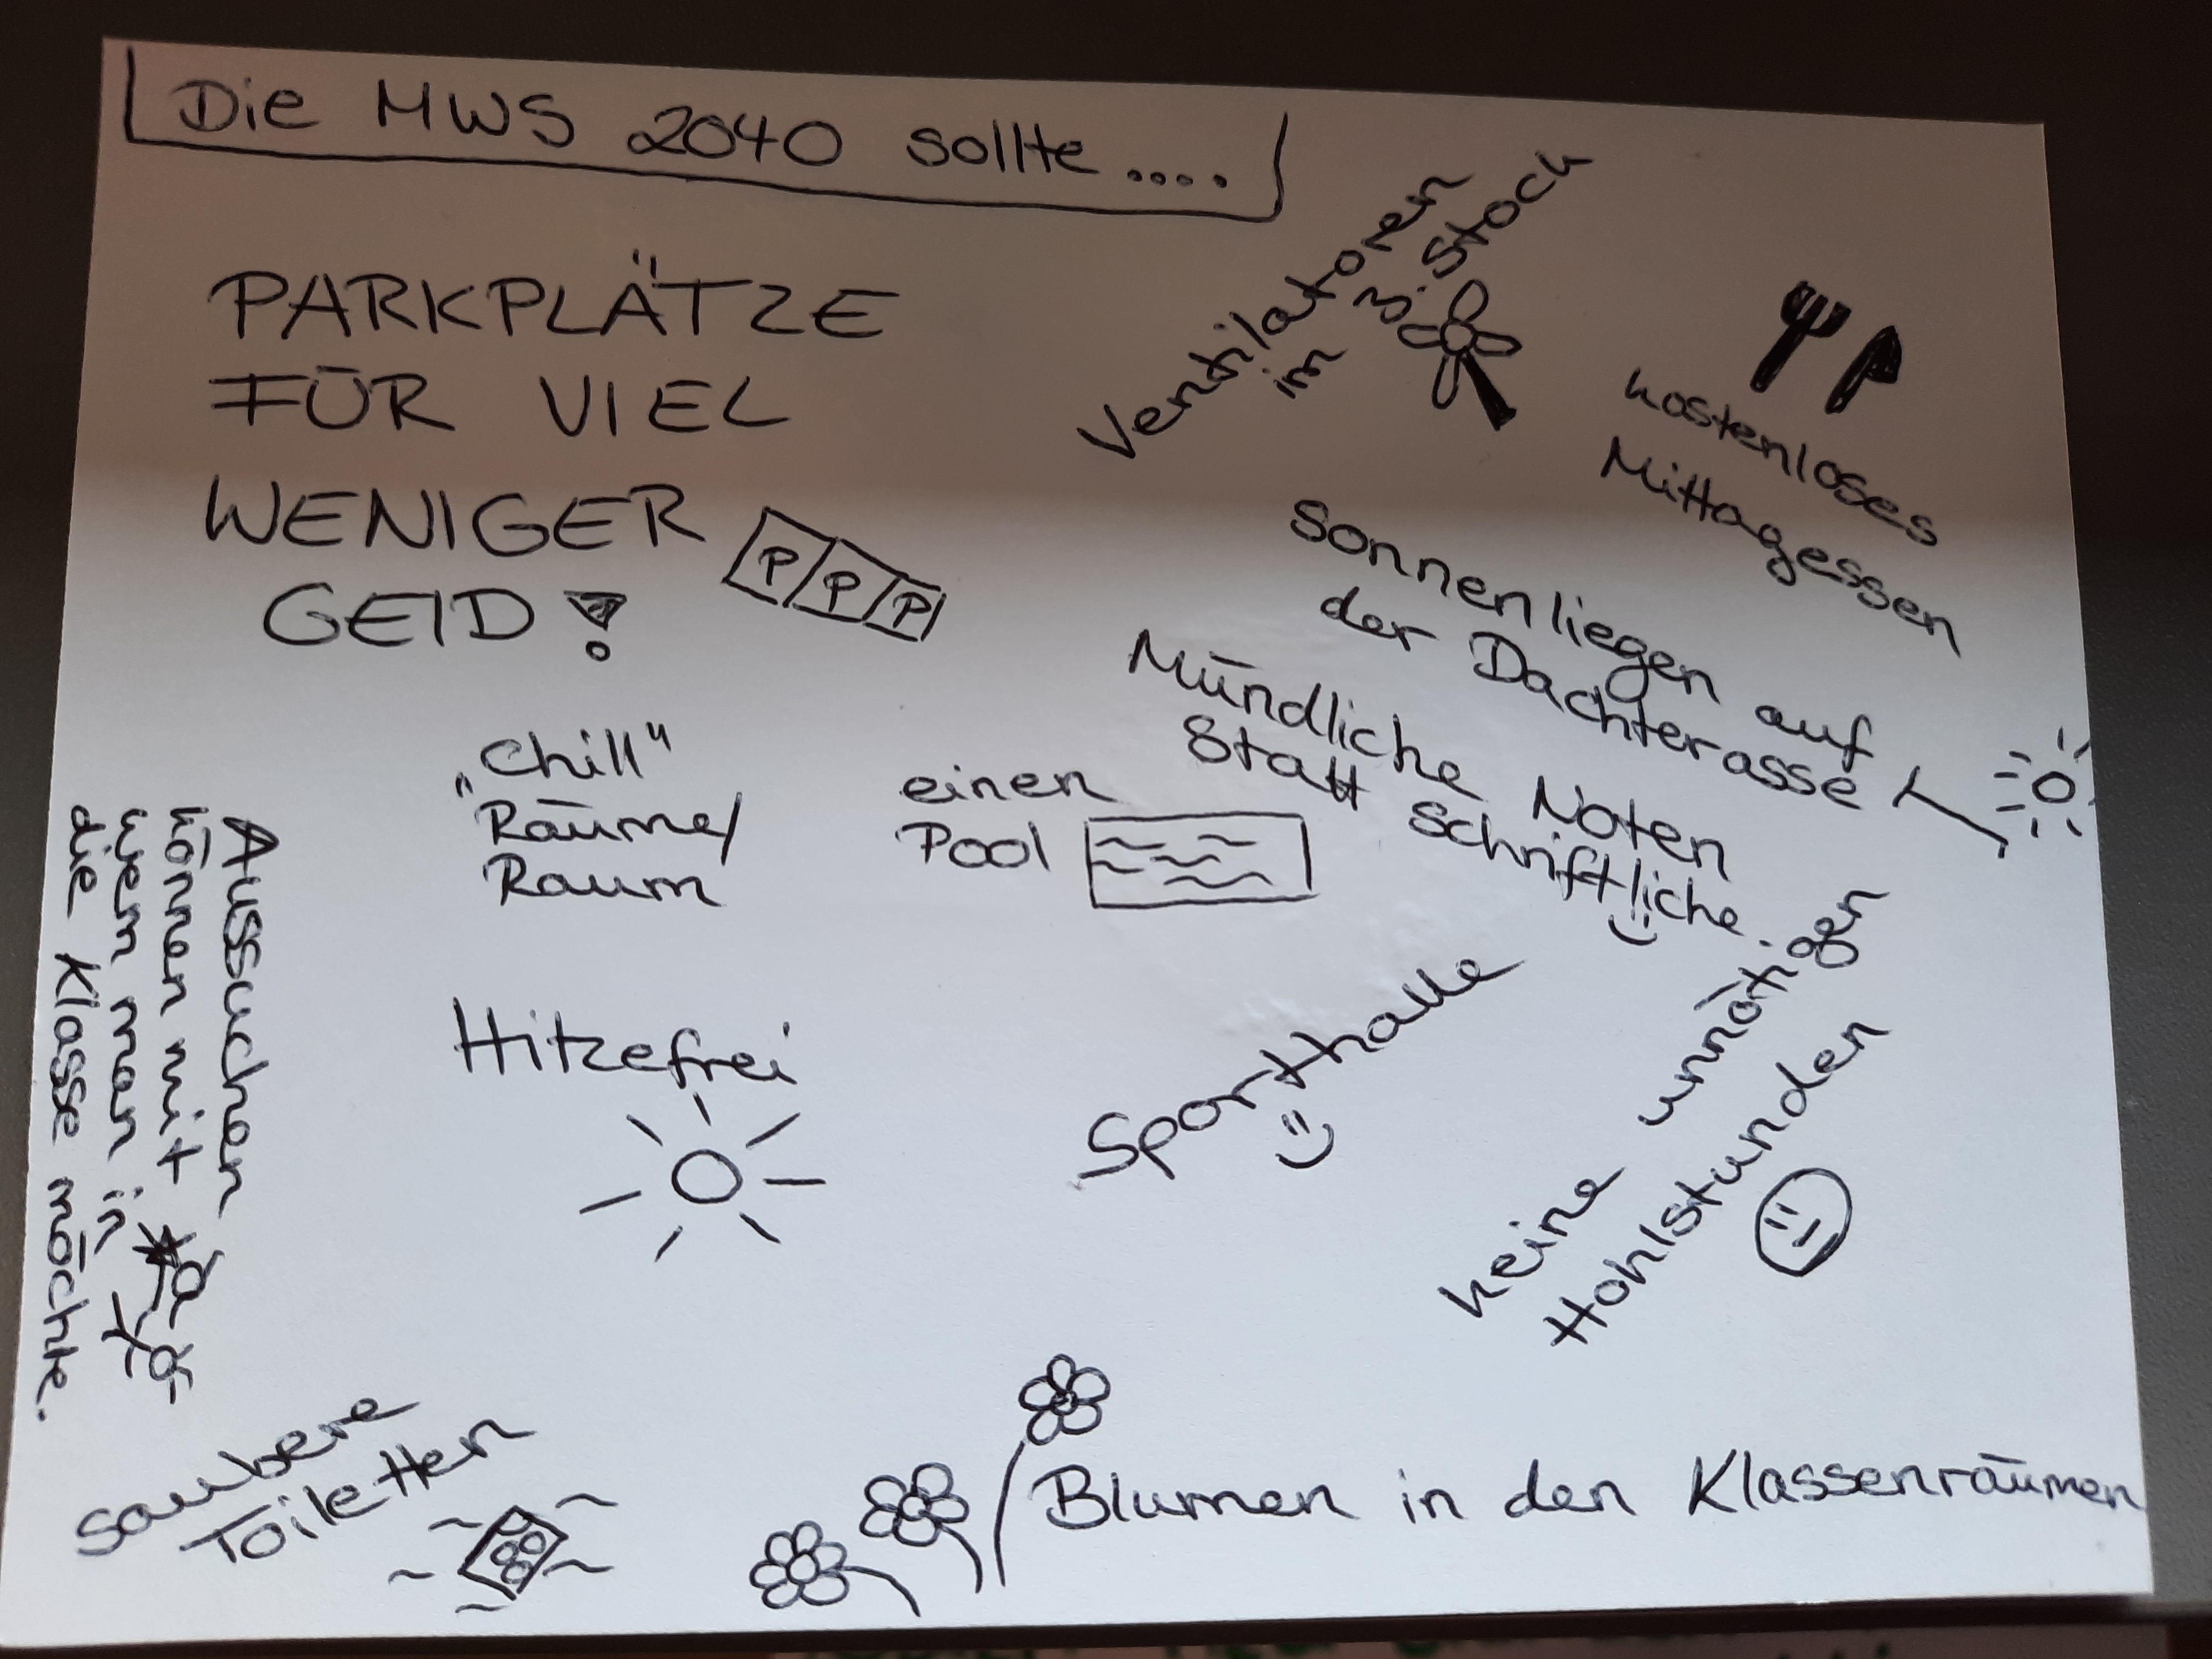 Die MWS 2040 sollte....
PARKPLÄTZE
FÜR VIEL
WENIGER
GELD!
P P P
Ventilatoren
im 3. Stock
kostenloses
Mittagessen
Sonnenliegen auf
der Dachterasse
Mündliche Noten
Statt schriftliche.
„Chill"
Räume/
Raum
einen
Pool
Aussuchen
können mit
wem man in
die Klasse möchte.
Hitzefrei
Sporthalle
keine unnötigen
Hohlstunden
saubere
Toiletten
Blumen in den Klassenräumen